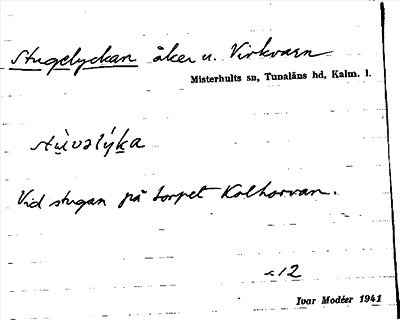 Stugelyckan åker u. Virkvarn
Misterhults sn, Tunaläns hd, Kalm. l.
stùvəlýka
Vid stugan på torpet Kolhorvan.
<12
Ivar Modéer 1941